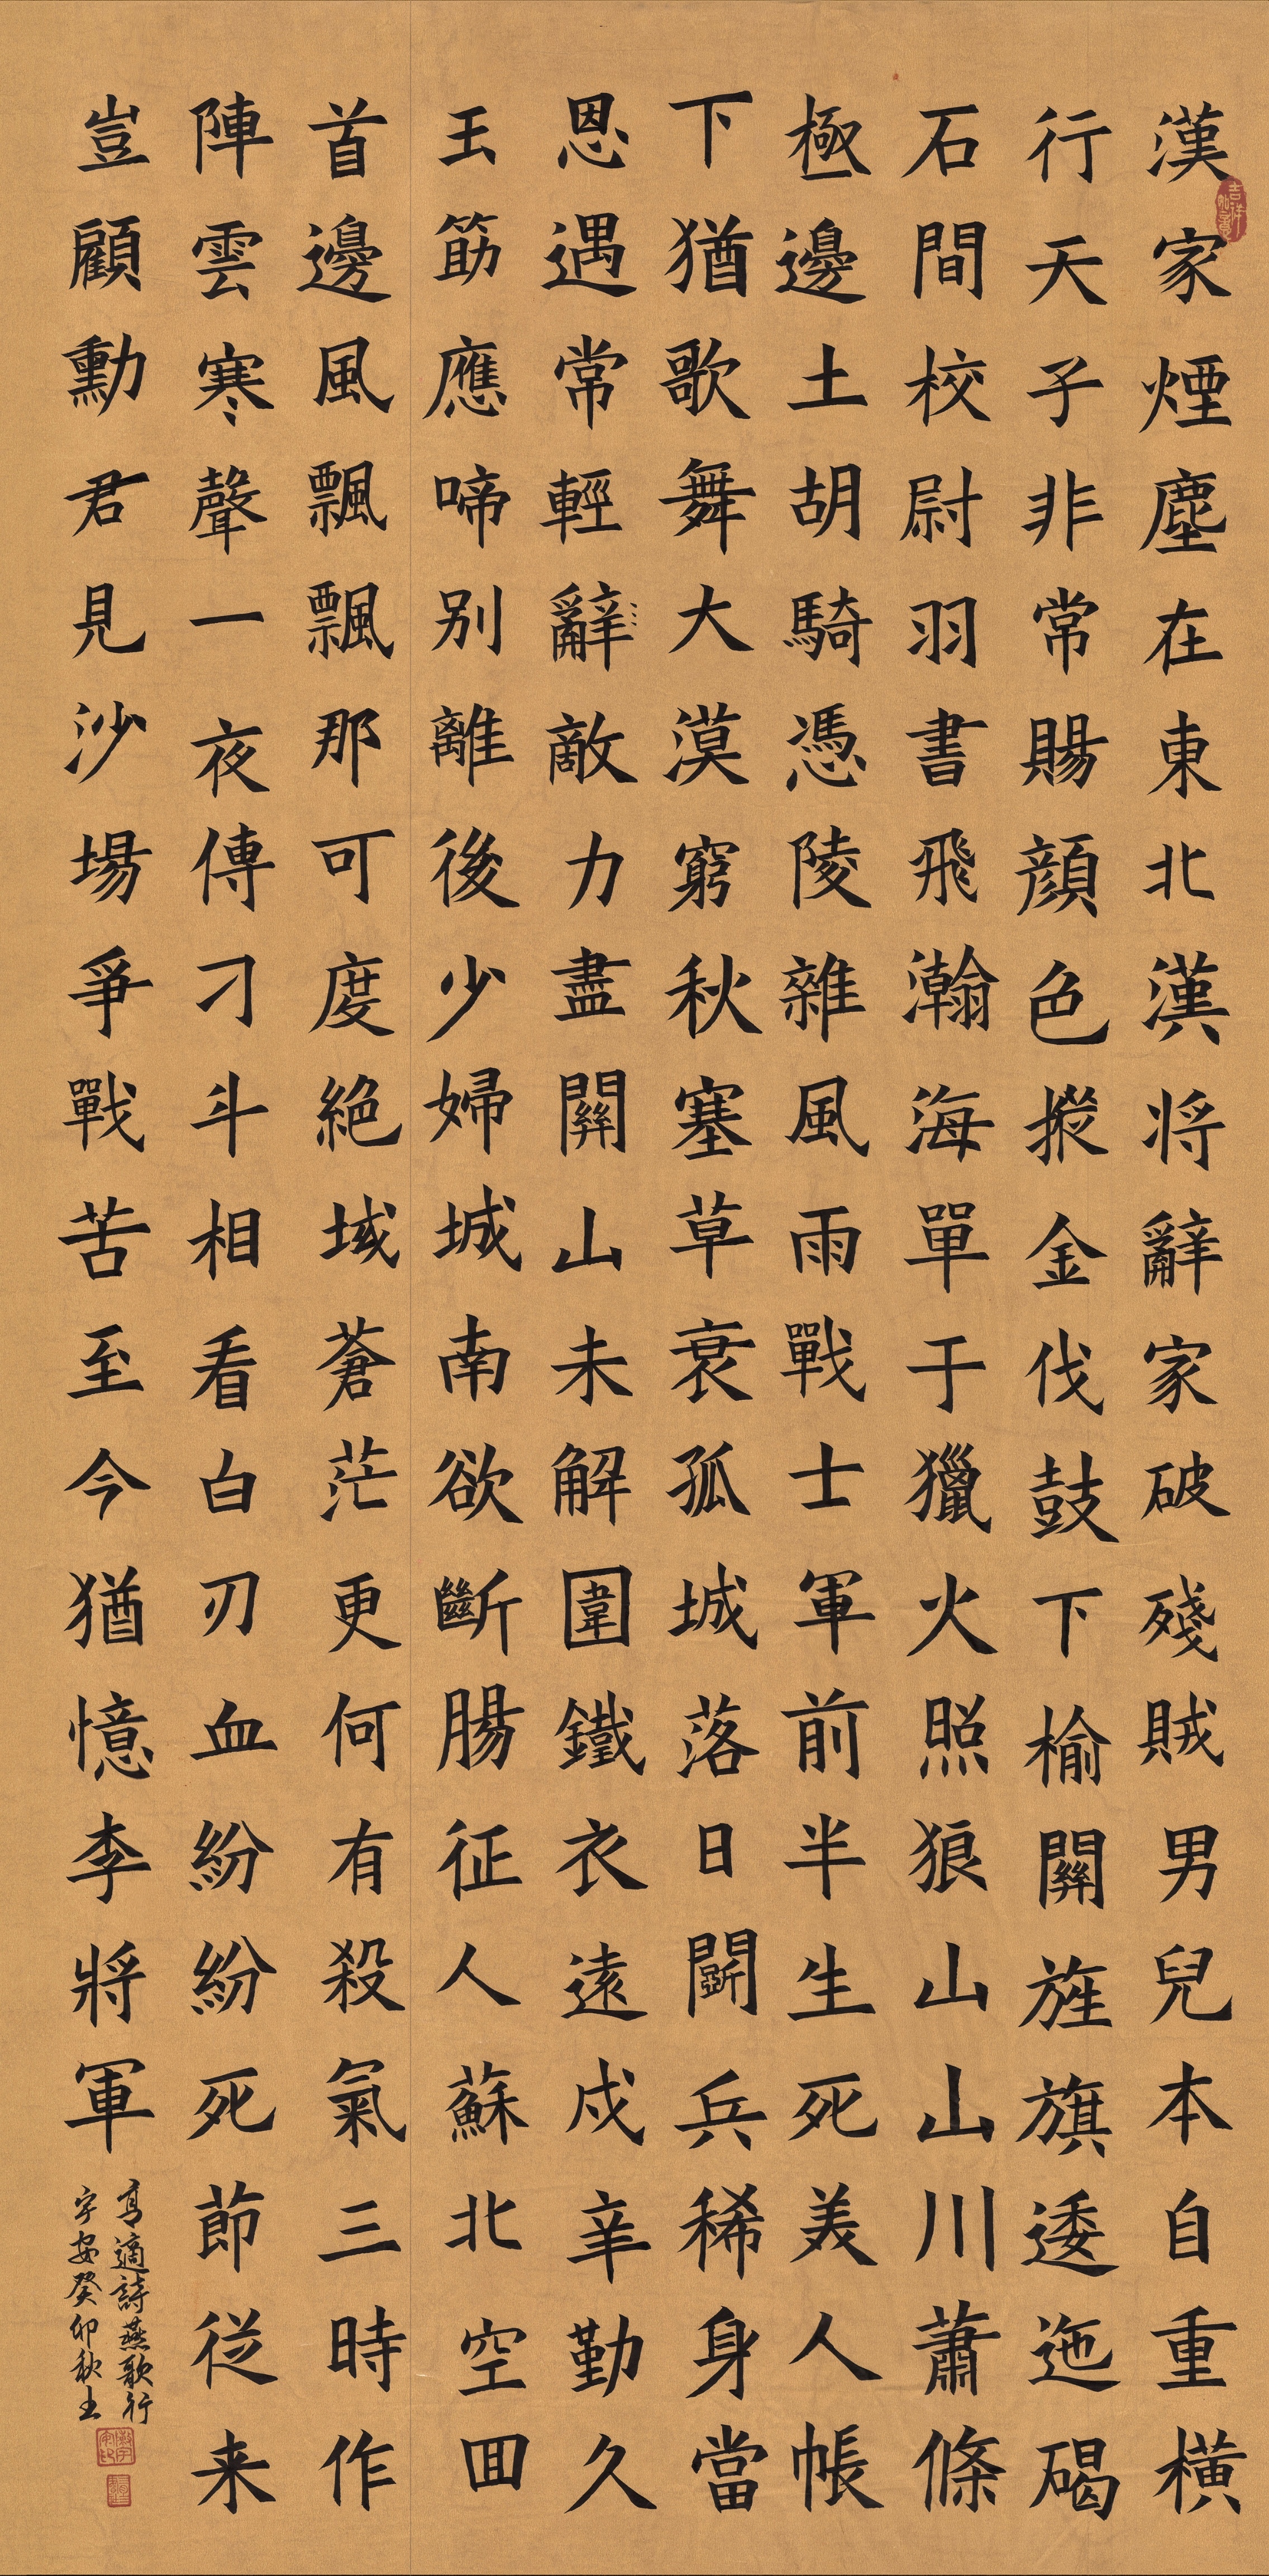 漢家煙塵在東北漢将辭家破殘賊男兒本自重橫
行天子非常賜顔色摐金伐鼓下榆關旌旗逶迤碣
石間校尉羽書飛瀚海單于獵火照狼山山川蕭條
極邊土胡騎憑陵雜風雨戰士軍前半生死美人帳
下猶歌舞大漠窮秋塞草衰孤城落日鬭兵稀身當
恩遇常輕辭敵力盡關山未解圍鐵衣遠戍辛勤久
玉筯應啼别離後少婦城南欲斷腸征人蘇北空囬
首邊風飄飄那可度絕域蒼茫更何有殺氣三時作
陣雲寒聲一夜傳刁斗相看白刃血紛紛死節従来
豈顧勳君見沙場爭戰苦至今猶憶李將軍
高適詩燕歌行
宇安癸卯秋
吉祥如意